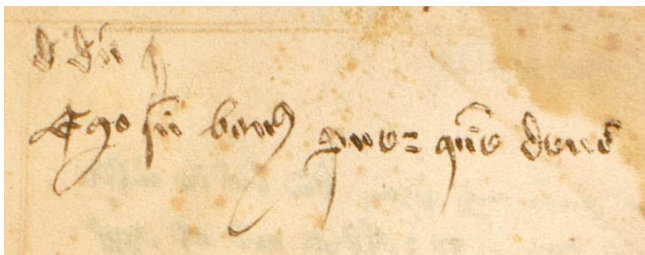 d dn̄
Ego sū bonꝰ pueꝛ quē deus